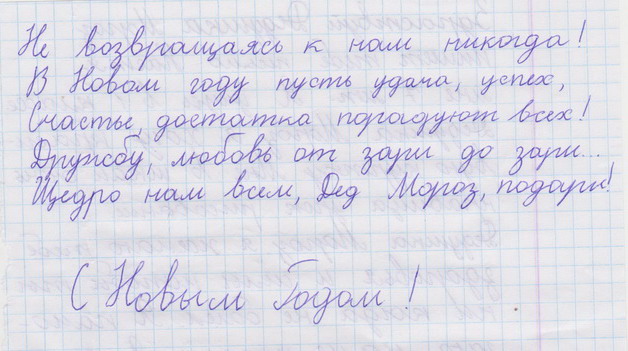 Не возвращаясь к нам никогда!
В Новом году пусть удача, успех,
Счастье, достатка порадуют всех!
Дружбу, любовь от зари до зари...
Щедро нам всем, Дед Мороз, подари!
С Новым Годом!